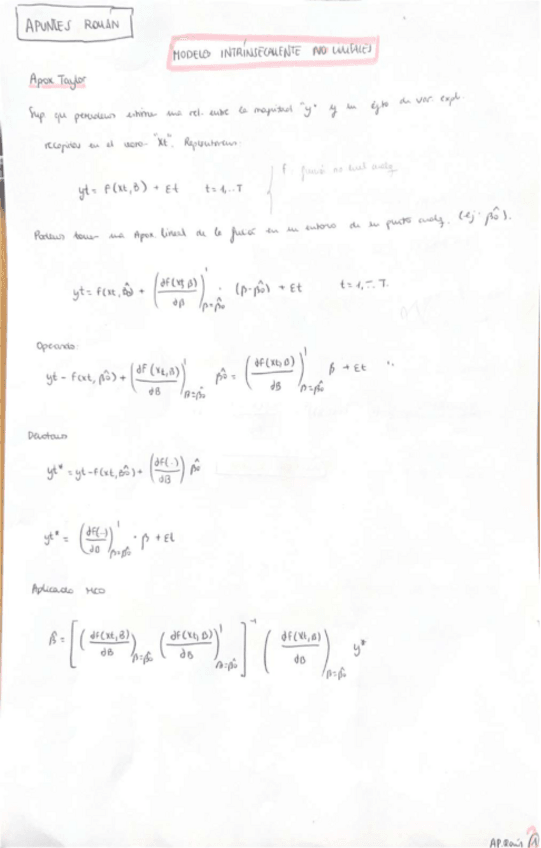 APUNTES ROMÁN
MODELO INTRÍNSECAMENTE NO LINEALES
Aprox Taylor
Sup que pretendemos estimar una rel. entre la magnitud "y" y un cjto de var. expl.
recogidas en el vector "xt".
yt = f(xt, β) + εt t=1,..T
f. función no lineal
Podemos tomar una Aprox lineal de la función en un entorno de un punto cualq. (ej. β̂0).
yt = f(xt, β̂0) + (df(xt, β)/dβ)'β=β̂0 · (β-β̂0) + εt t=1,..T.
Operando:
yt - f(xt, β̂0) + (dF(xt, β)/dβ)'β=β̂0 β̂0 = (df(xt, β)/dβ)'β=β̂0 β + εt
Denotamos
yt* = yt - f(xt, β̂0) + (df(.)/dβ) β̂0
yt* = (df(.)/dβ)'β=β̂0 · β + εt
Aplicando MCO
β̂ = [(df(xt, β)/dβ)β=β̂0 (df(xt, β)/dβ)'β=β̂0]⁻¹ (df(xt, β)/dβ)β=β̂0 y*